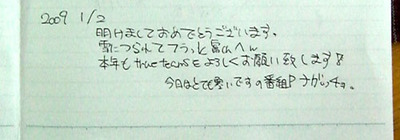 2009 1/2
明けましておめでとうございます。
雪につられてフラっと富山へ
本年もtrue tearsをよろしくお願い致します
今日はとても寒いですの番組P ナガッチョ。